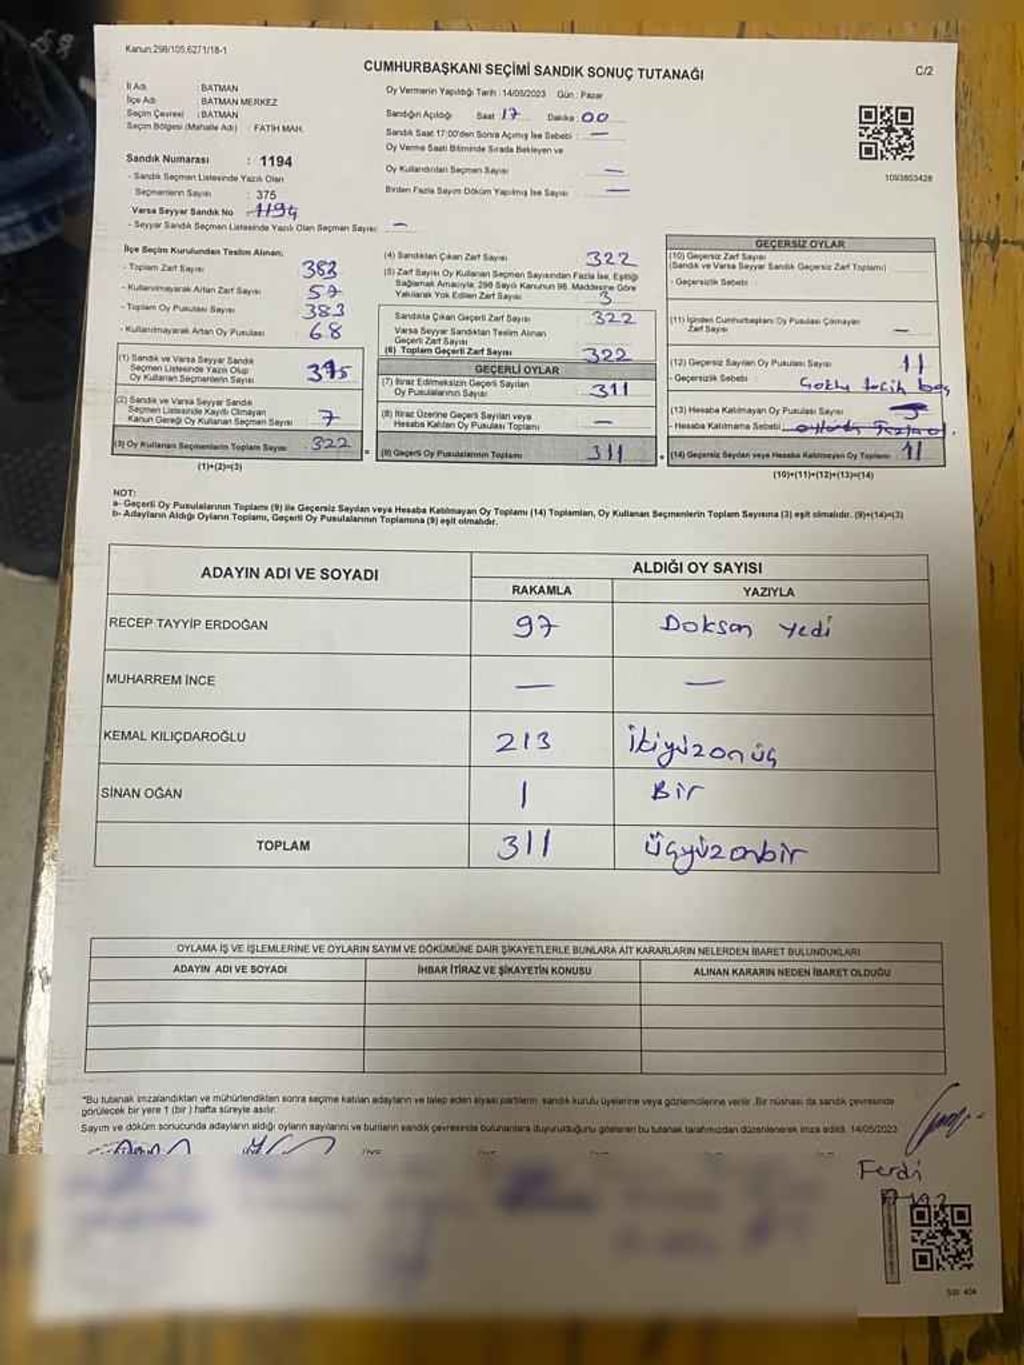 Kanun:298/105,6271/18-1
CUMHURBAŞKANI SEÇİMİ SANDIK SONUÇ TUTANAĞI
C/2
İl Adı : BATMAN
İlçe Adı : BATMAN MERKEZ
Seçim Çevresi : BATMAN
Seçim Bölgesi (Mahalle Adı) : FATİH MAH.
Sandık Numarası : 1194
- Sandık Seçmen Listesinde Yazılı Olan
Seçmenlerin Sayısı : 375
Varsa Seyyar Sandık No 1194
- Seyyar Sandık Seçmen Listesinde Yazılı Olan Seçmen Sayısı: -
Oy Vermenin Yapıldığı Tarih : 14/05/2023 Gün : Pazar
Sandığın Açıldığı Saat 17 Dakika : 00
Sandık Saat 17:00'den Sonra Açılmış İse Sebebi : —
Oy Verme Saati Bitiminde Sırada Bekleyen ve
Oy Kullandırılan Seçmen Sayısı —
Birden Fazla Sayım Döküm Yapılmış İse Sayısı —
1093803428
İlçe Seçim Kurulundan Teslim Alınan;
- Toplam Zarf Sayısı 383
- Kullanılmayarak Artan Zarf Sayısı 57
- Toplam Oy Pusulası Sayısı 383
- Kullanılmayarak Artan Oy Pusulası 68
(1) Sandık ve Varsa Seyyar Sandık
Seçmen Listesinde Yazılı Olup
Oy Kullanan Seçmenlerin Sayısı
(2) Sandık ve Varsa Seyyar Sandık
Seçmen Listesinde Kayıtlı Olmayan
Kanun Gereği Oy Kullanan Seçmen Sayısı 7
(3) Oy Kullanan Seçmenlerin Toplam Sayısı 322
(1)+(2)=(3)
(4) Sandıktan Çıkan Zarf Sayısı 322
(5) Zarf Sayısı Oy Kullanan Seçmen Sayısından Fazla İse, Eşitliği
Sağlamak Amacıyla, 298 Sayılı Kanunun 98. Maddesine Göre
Yakılarak Yok Edilen Zarf Sayısı 3
Sandıkta Çıkan Geçerli Zarf Sayısı 322
Varsa Seyyar Sandıktan Teslim Alınan
Geçerli Zarf Sayısı
(6) Toplam Geçerli Zarf Sayısı 322
GEÇERLİ OYLAR
(7) İtiraz Edilmeksizin Geçerli Sayılan
Oy Pusulalarının Sayısı 311
(8) İtiraz Üzerine Geçerli Sayılan veya
Hesaba Katılan Oy Pusulası Toplamı —
(9) Geçerli Oy Pusulalarının Toplamı 311
GEÇERSİZ OYLAR
(10) Geçersiz Zarf Sayısı
(Sandık ve Varsa Seyyar Sandık Geçersiz Zarf Toplamı)
- Geçersizlik Sebebi :
(11) İçinden Cumhurbaşkanı Oy Pusulası Çıkmayan
Zarf Sayısı —
(12) Geçersiz Sayılan Oy Pusulası Sayısı 11
- Geçersizlik Sebebi :
(13) Hesaba Katılmayan Oy Pusulası Sayısı
- Hesaba Katılmama Sebebi
(14) Geçersiz Sayılan veya Hesaba Katılmayan Oy Toplamı 11
(10)+(11)+(12)+(13)=(14)
NOT:
a- Geçerli Oy Pusulalarının Toplamı (9) ile Geçersiz Sayılan veya Hesaba Katılmayan Oy Toplamı (14) Toplamları, Oy Kullanan Seçmenlerin Toplam Sayısına (3) eşit olmalıdır. (9)+(14)=(3)
b- Adayların Aldığı Oyların Toplamı, Geçerli Oy Pusulalarının Toplamına (9) eşit olmalıdır.
ADAYIN ADI VE SOYADI
ALDIĞI OY SAYISI
RAKAMLA YAZIYLA
RECEP TAYYİP ERDOĞAN 97 Doksan yedi
MUHARREM İNCE — —
KEMAL KILIÇDAROĞLU 213 İkiyüzonüç
SİNAN OĞAN 1 Bir
TOPLAM 311 Üçyüzonbir
OYLAMA İŞ VE İŞLEMLERİNE VE OYLARIN SAYIM VE DÖKÜMÜNE DAİR ŞİKAYETLERLE BUNLARA AİT KARARLARIN NELERDEN İBARET BULUNDUKLARI
ADAYIN ADI VE SOYADI İHBAR İTİRAZ VE ŞİKAYETİN KONUSU ALINAN KARARIN NEDEN İBARET OLDUĞU
*Bu tutanak imzalandıktan ve mühürlendikten sonra seçime katılan adayların ve talep eden siyasi partilerin sandık kurulu üyelerine veya gözlemcilerine verilir. Bir nüshası da sandık çevresinde
görülecek bir yere 1 (bir) hafta süreyle asılır.
Sayım ve döküm sonucunda adayların aldığı oyların sayılarını ve bunların sandık çevresinde bulunanlara duyurulduğunu gösteren bu tutanak tarafımızdan düzenlenerek imza edildi. 14/05/2023
Ferdi